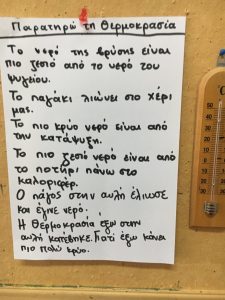 Παρατηρώ τη Θερμοκρασία
Το νερό της βρύσης είναι
πιο ζεστό από το νερό του
ψυγείου.
Το παγάκι λιώνει στο χέρι
μας.
Το πιο κρύο νερό είναι από
την κατάψυξη.
Το πιο ζεστό νερό είναι από
το ποτήρι πάνω στο
καλοριφέρ.
Ο πάγος στην αυλή έλιωσε
και έγινε νερό.
Η θερμοκρασία έξω στην
αυλή κατέβηκε. Γιατί έξω κάνει
πιο πολύ κρύο.